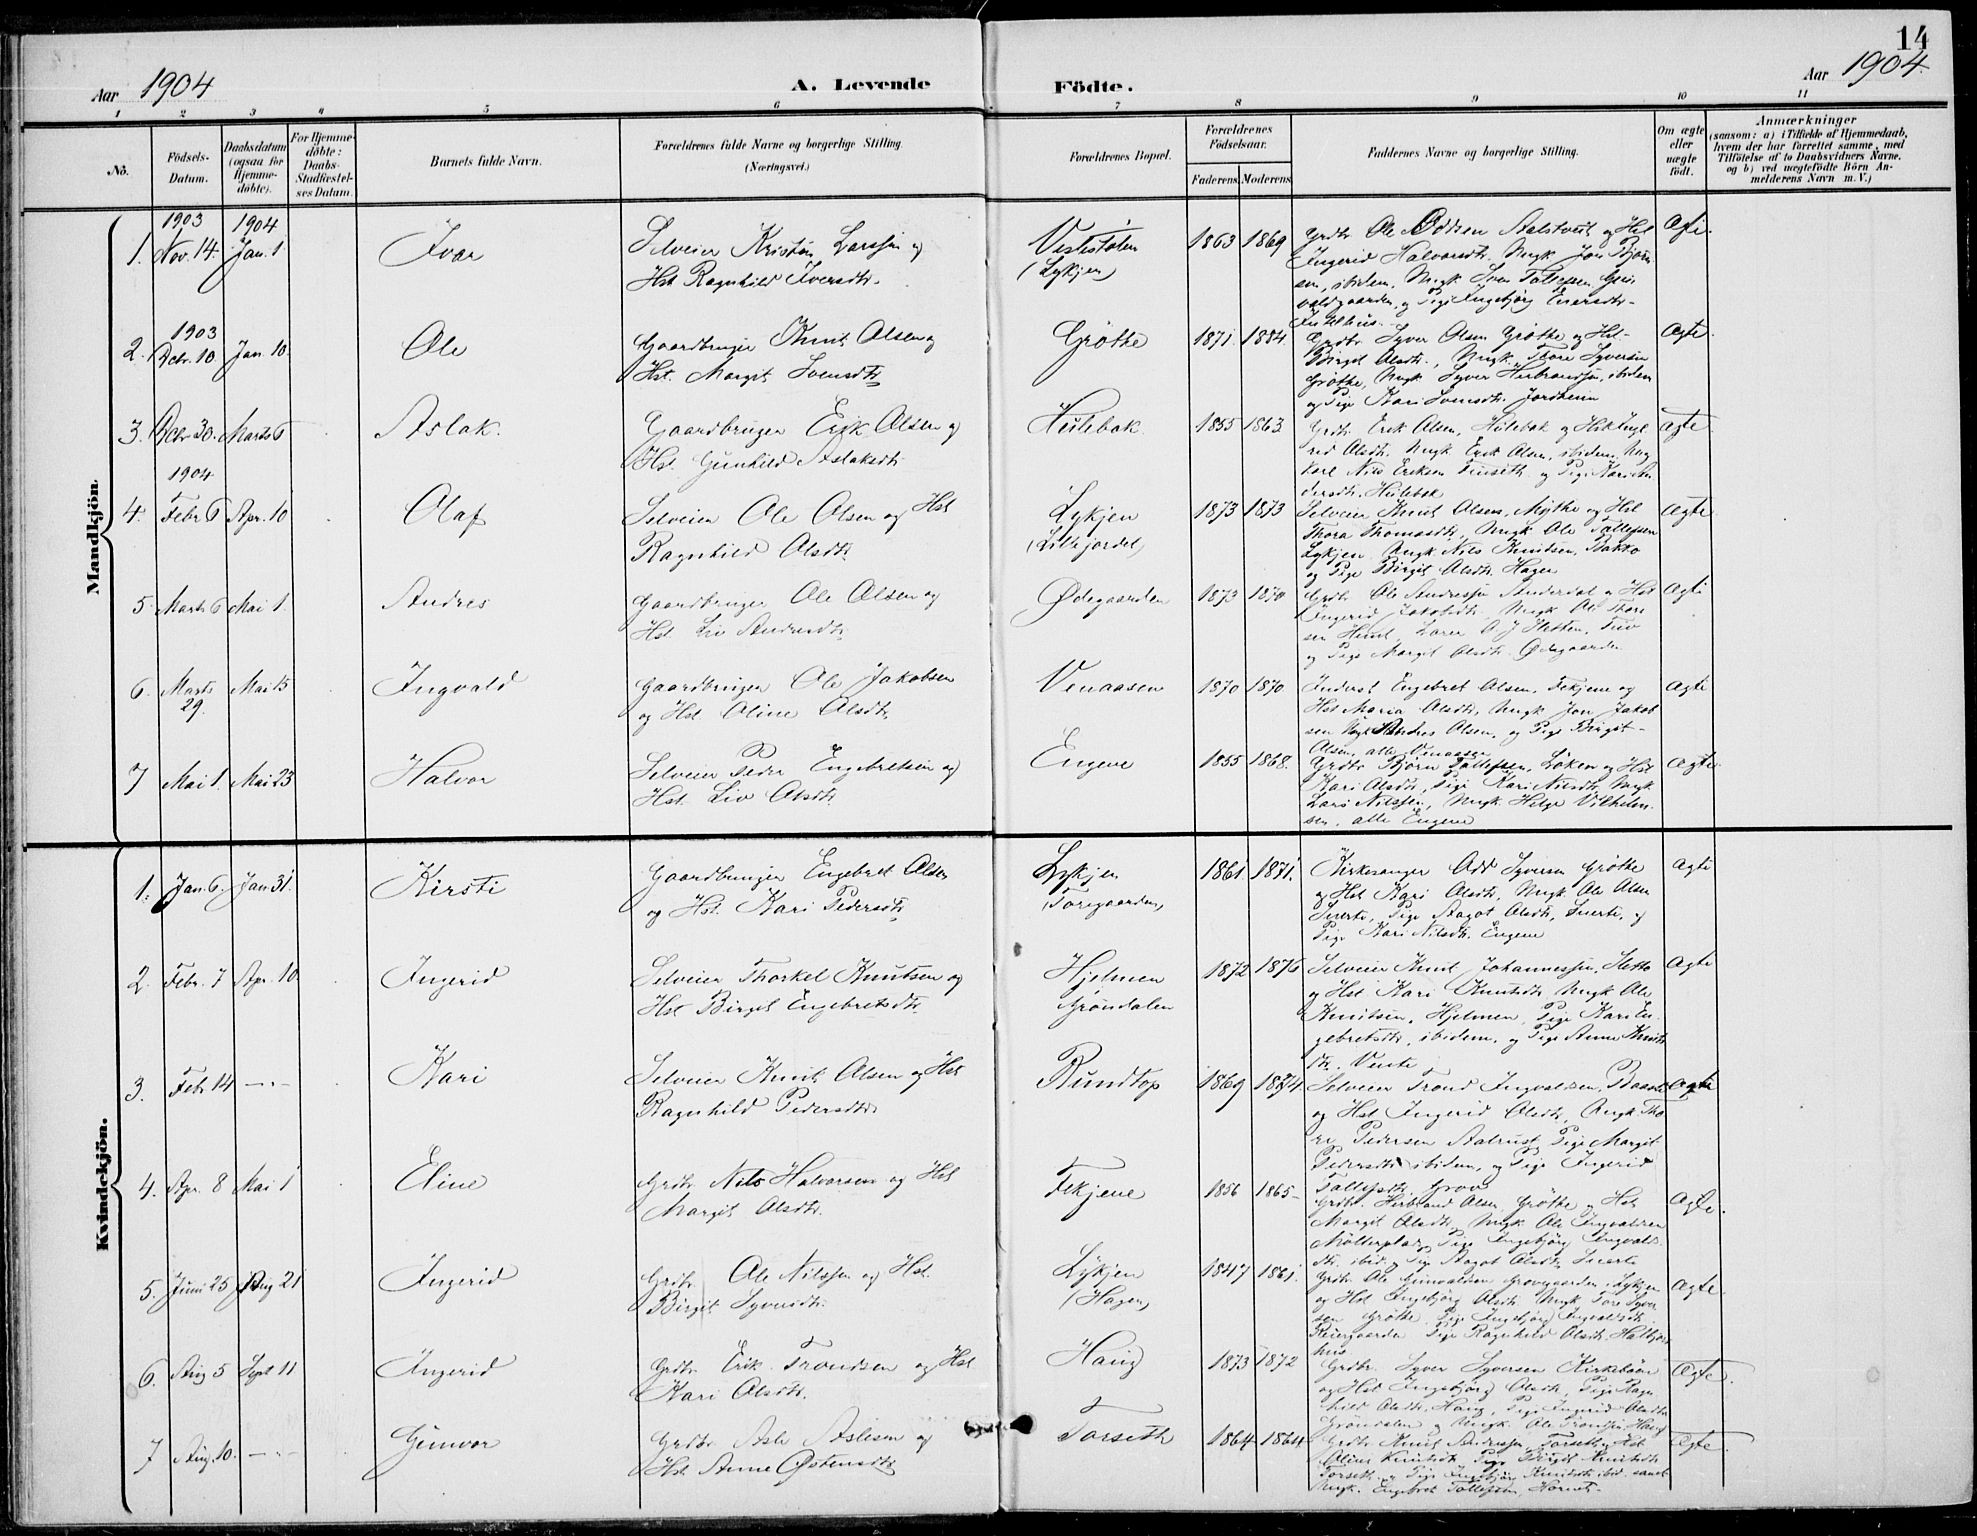 14
Aar 1904
A. Levende
Födte.
Aar 1904.
1 2 3 4 5 6 7 8 9 10 11
No.
Födsels-
Datum.
Daabsdatum
(ogsaa for
Hjemme-
döbte).
For Hjemme-
döbte:
Daabs-
Stadfæstel-
ses Datum.
Barnets fulde Navn.
Forældrenes fulde Navne og borgerlige Stilling
(Næringsvei.)
Forældrenes Bopæl.
Forældrenes
Födselsaar.
Faderens. Moderens.
Faddernes Navne og borgerlige Stilling.
Om ægte
eller
uægte
födt.
Anmærkninger
(saasom: a) i Tilfælde af Hjemmedaab,
hvem der har forrettet samme, med
Tilföielse af to Daabsvidners Navne,
og b) ved uægtefödte Börn An-
melderens Navn m. V.)
Mandkjön.
1903 1904
1. Nov. 14. Jan. 1
Ivar
Selveier Kristen Larssen og
Hst Ragnhild Iversdtr.
Veslestølen
(Lykjen)
1863 1869
Grdbr Ole Oddsen Aalstveit og Hst
Ingerid Halvorsdtr. Ungk Jon Bjørn
sen, ibidem, Ungk Sven Tollefsen
og Pige Ingebjørg Einarsdtr.
Ægte.
1903
2. Dcbr. 10 Jan. 10.
Ole
Gaardbruger Knut Olsen og
Hst. Margit Svensdtr.
Grøthe
1871. 1884.
Grdbr Syver Olsen Grøthe og Hst.
Birgit Olsdtr., Ungk. Thore Syversen
Grøthe, Ungk Syver Herbrandsen, ibidem
og Pige Kari Svensdtr. Jordheim
Ægte.
3. Dcbr 30. Marts 6
Aslak.
Gaardbruger Erik Olsen og
Hst. Gunhild Aslaksdtr
Hulebak.
1855 1863
Grdbr. Erik Olsen, Hulebak og Hst Inge
rid Olsdtr. Ungk Erik Olsen, ibidem, Ung
karl Nils Eriksen Tuseth og Pige Kari An
dersdtr. Hulebak
Ægte
1904
4. Febr 6 Apr. 10
Olaf
Selveier Ole Olsen og Hst
Ragnhild Olsdtr.
Lykjen
(Lillejordet)
1873 1873
Selveier Knut Olsen, Mythe og Hst
Thora Thomasdtr, Ungk Ole Tollefsen
Lykjen, Ungk Nils Knutsen, Bakko
og Pige Birgit Olsdtr. Hagen
Ægte
5 Marts 6 Mai 1.
Andres
Gaardbruger Ole Olsen og
Hst Liv Andresdtr.
Ødegaarden
1873 1870
Grdbr Ole Andresen Anderdal og Hst
Ingerid Jakobsdtr. Ungk Ole Thore
sen
og Pige Margit Olsdtr. Ødegaarden
Ægte
6. Marts 29. Mai 15
Ingvald
Gaardbruger Ole Jakobsen
og Hst Oline Olsdtr.
Venaasen
1870 1870
Inderst Engebret Olsen, Fekjene og
Hst Maria Olsdtr, Ungk Jon Jakob
sen Ungk Andres Olsen, og Pige Birgit
Olsen, alle Venaasen
Ægte
7 Mai 1. Mai 23
Halvor
Selveier Peder Engebretsen og
Hst Liv Olsdtr
Engene
1855 1868.
Grdbr Bjørn Tollefsen, Løken og Hst
Kari Olsdtr, Pige Kari Nilsdtr Ungk
Lars Nilssen, Ungk. Helge Vilhelm
sen, alle Engene
Ægte
Kvindekjön.
1. Jan. 6. Jan 31.
Kirsti
Gaardbruger Engebret Olsen
og Hst. Kari Pedersdtr.
Lykjen
(Toregaarden)
1861. 1871.
Kirkesanger Odd Syversen Grøthe
og Hst Kari Olsdtr, Ungk Ole Olsen
Snerte, Pige Aagot Olsdtr, Snerte, og
Pige Kari Nilsdtr. Engene
Ægte
2. Febr. 7 Apr. 10
Ingerid
Selveier Thorkel Knutsen og
Hst Birgit Engebretsdtr.
Hjelmen
Grøndalen
1872 1876
Selveier Knut Johannessen,
og Hst Kari Knutsdtr Ungk Ole
Knutsen, Hjelmen, Pige Kari En-
gebretsdtr, ibidem, og Pige Anne Knuts
dtr.
Ægte
3. Febr 14 — " —
Kari
Selveier Knut Olsen og Hst
Ragnhild Pedersdtr.
Rundtop
1869 1874.
Selveier Trond Ingvaldsen,
og Hst Ingerid Olsdtr, Ungk Tho
re Pedersen Aalrust, Pige Margit
Pedersdtr ibidem, og Pige Ingerid
Tollefsdtr Grove
Ægte
4. Apr. 8 Mai 1
Eline
Grdbr. Nils Halvorsen og Hst
Margit Olsdtr.
Fekjene
1856 1865
Grdbr. Herbrand Olsen Grøthe og Hst
Margit Olsdtr, Ungk. Ole Ingvaldsen
Møllerplads, Pige Ingebjørg Ingvalds
dtr. ibid. og Pige Aagot Olsdtr, Snerte
Ægte.
5. Juni 25 Aug 21
Ingerid
Grdbr. Ole Nilssen og Hst.
Birgit Syversdtr.
Lykjen
(Hagen)
1847 1861.
Grdbr Ole Gunvaldsen Grovegaarden, Lykjen
og Hst Ingebjørg Olsdtr Ungk Tore Syver
sen Grøthe, Pige Ingebjørg Ingvaldsdtr.
Pige Ragnhild Olsdtr.
Ægte.
6. Aug 5 Sept 11
Ingerid
Grdbr. Erik Trondsen og Hst
Kari Olsdtr.
Haug
1873 1872
Grdbr. Syver Syversen Kirkebøen
og Hst Ingebjørg Olsdtr, Pige Ragn
hild Olsdtr, Haug, Pige Ingerid Olsdtr
Grøndalen og Ungk. Ole Trondsen Haug
Ægte.
7 Aug. 10. — " —
Gunvor
Grdbr Asle Aslesen og
Hst. Anne Østensdtr
Torseth
1864 1864
Grdbr Knut Andressen, Torseth, Hst
Oline Knutsdtr Pige Birgit Knutsdtr
Torseth, og Pige Ingebjørg Knutsdtr ibid. samt
Ungk. Engebret Tollefsen,
Ægte.